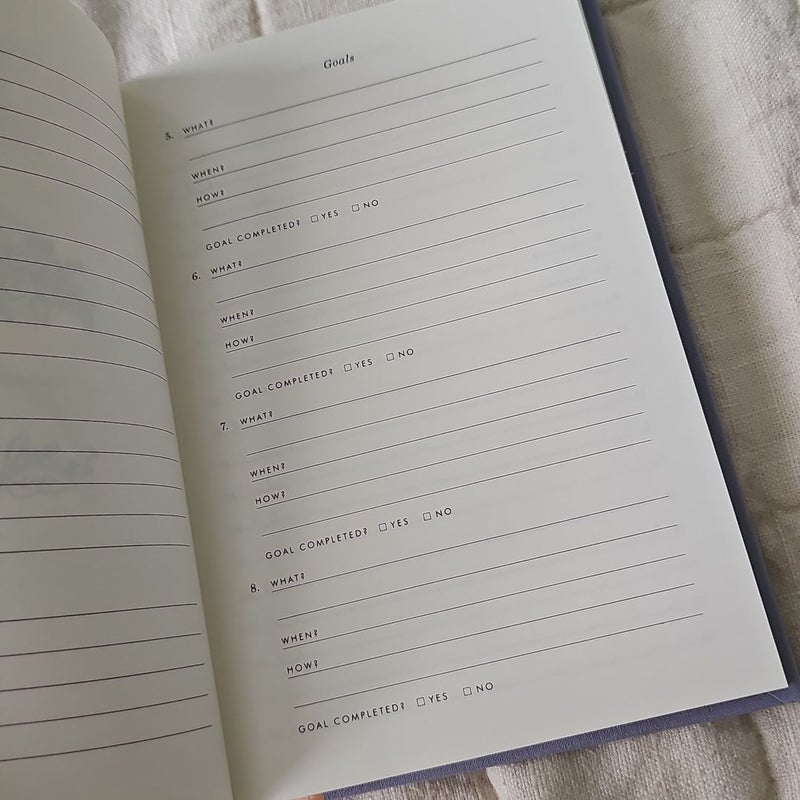 Goals
5. WHAT?
WHEN?
HOW?
GOAL COMPLETED? □ YES □ NO
6. WHAT?
WHEN?
HOW?
GOAL COMPLETED? □ YES □ NO
7. WHAT?
WHEN?
HOW?
GOAL COMPLETED? □ YES □ NO
8. WHAT?
WHEN?
HOW?
GOAL COMPLETED? □ YES □ NO